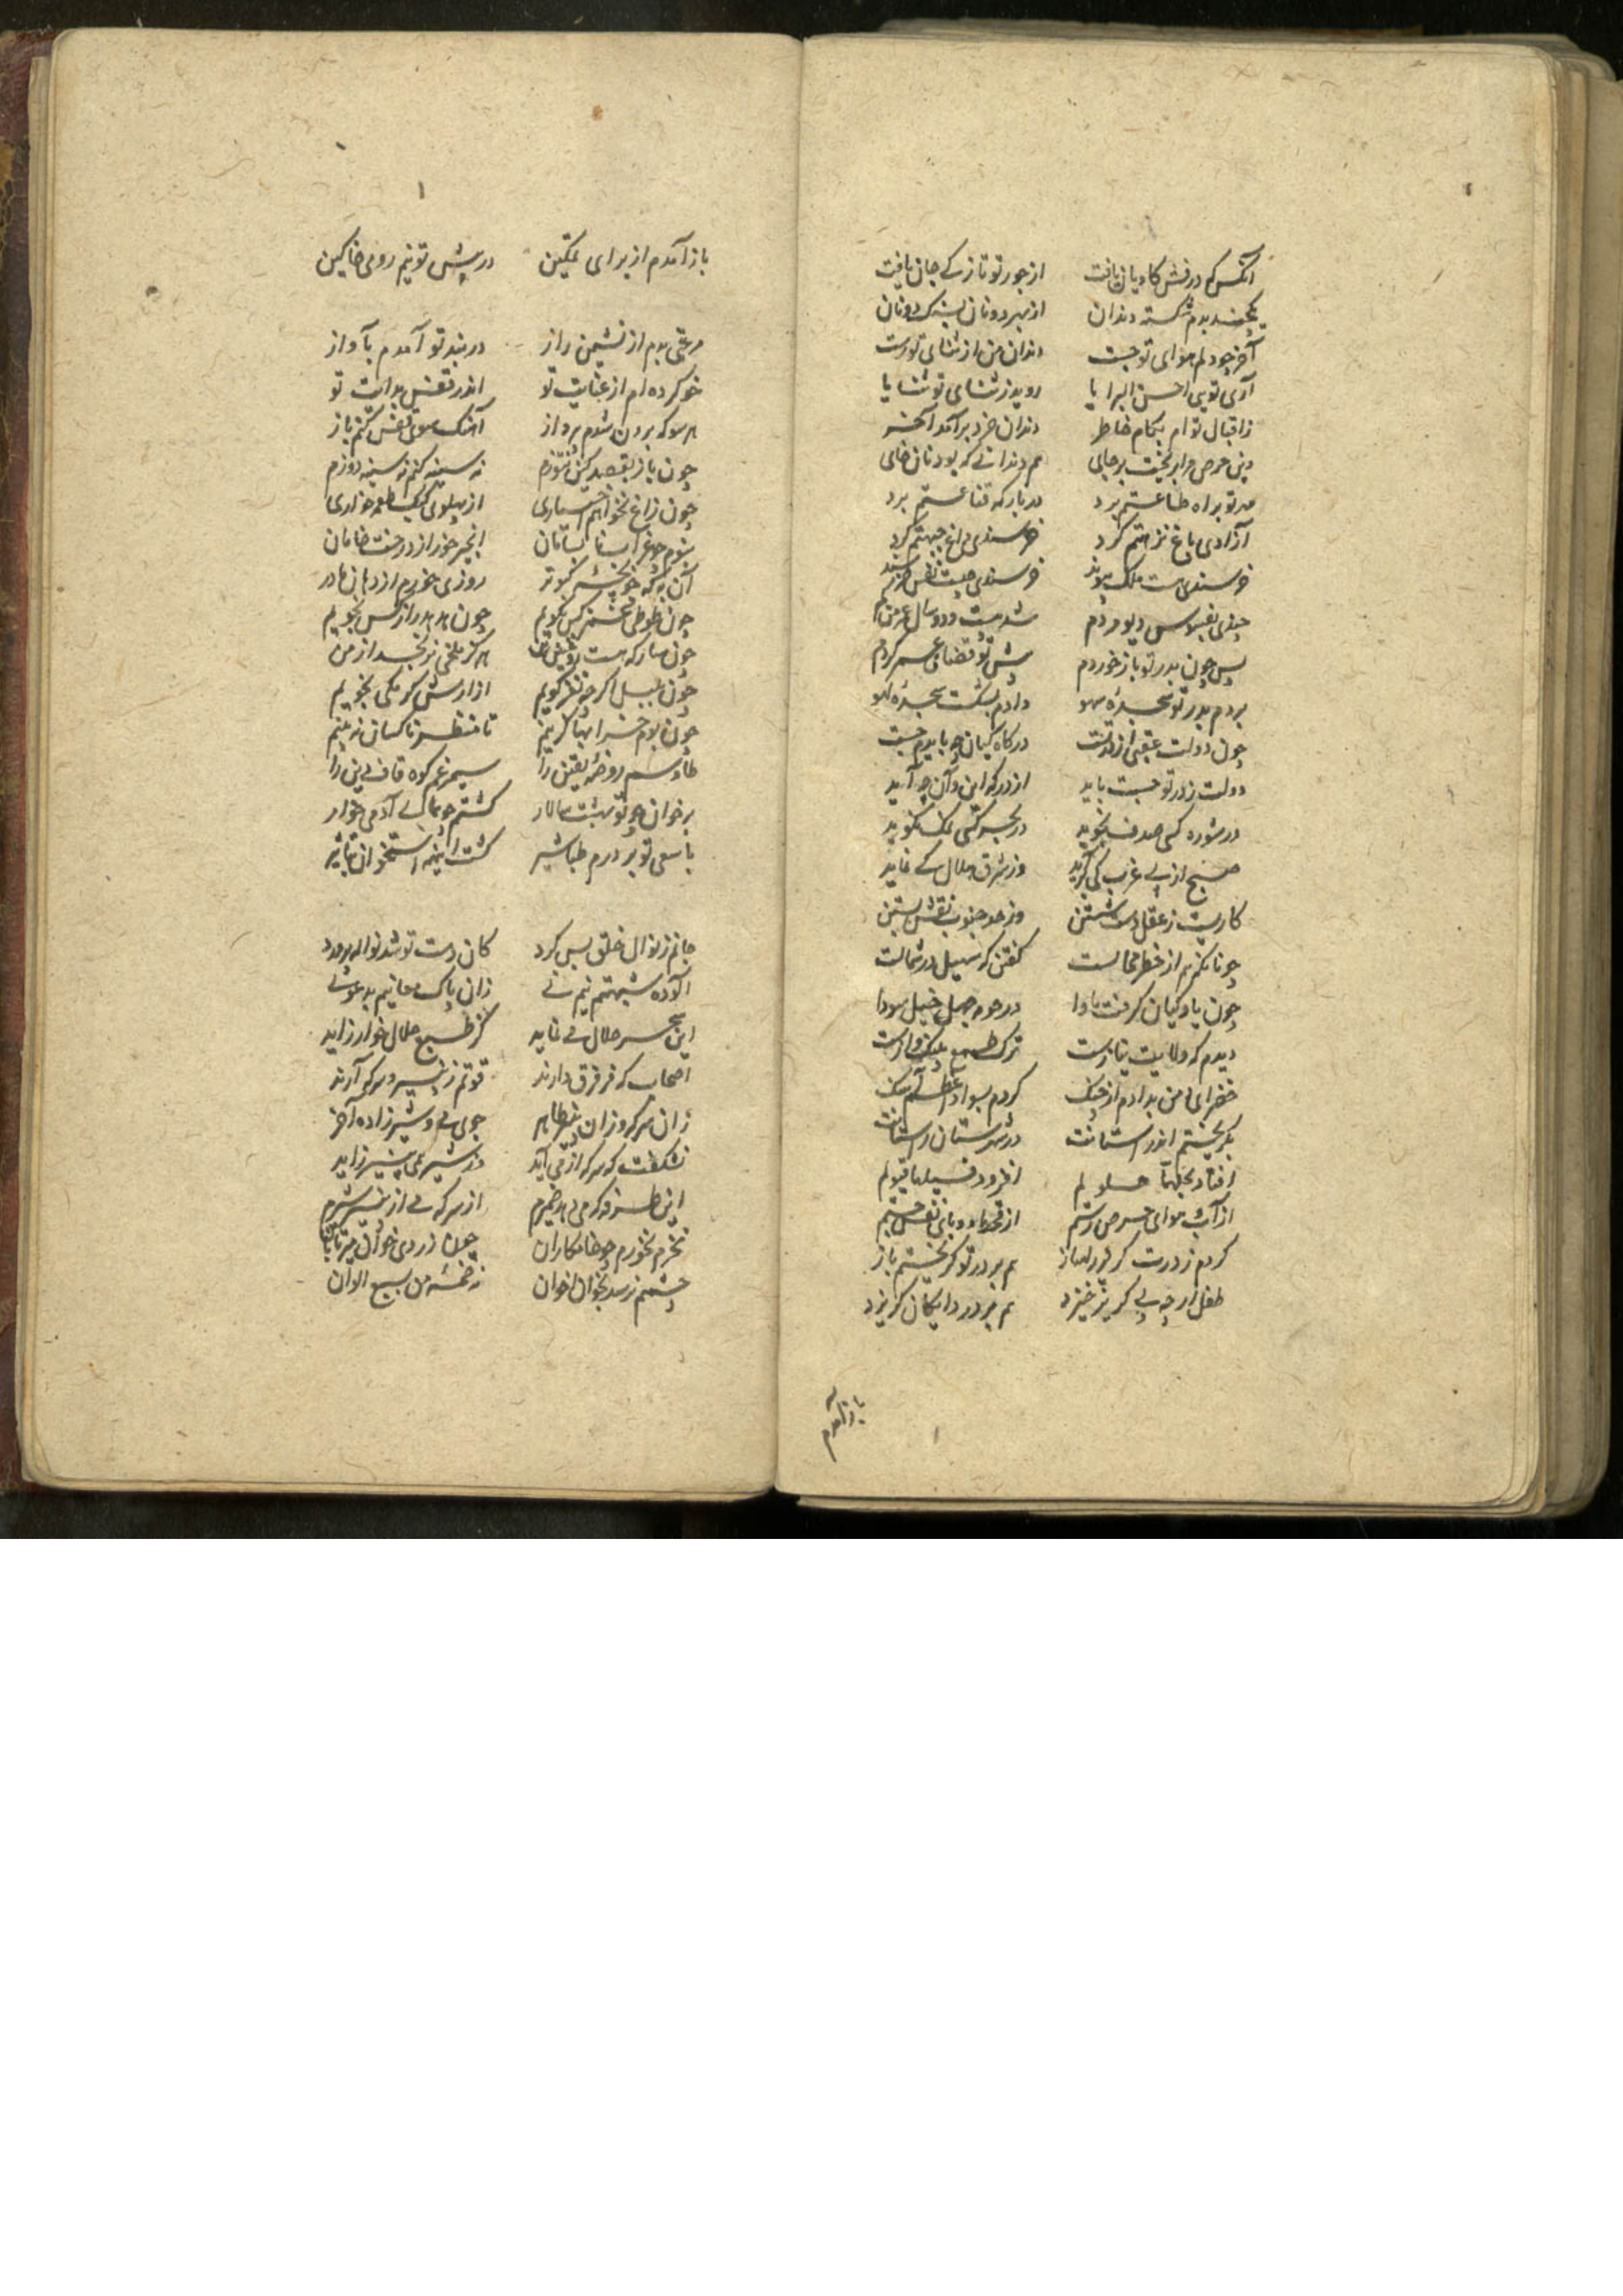 آنکس که درفش کاویان یافت از جور تو تازکی جان یافت
یکچند بدم شکسته دندان از بهر دو نان بسنک دونان
آخر چو دلم هوای تو جست دندان من از ثنای تو رست
آری تویی احسن البرایا روید ز ثنای تو ثنایا
ز اقبال توام بکام خاطر دندان خرد برآمد آخر
دین حرص مرا بریخت برجای هم دندانی که بود نان خای
مهر تو براه طاعتم برد در بارکه قناعتم برد
آزادی باغ نزهتم کرد خرسندی داغ جبهتم کرد
خرسندی هست ملک پیوند خرسندی چیست نفس خرسند
چندی بفسوس دیو مردم شدست و دو سال عمر من کم
پس چون بدر تو باز خوردم پیش تو قضای عمر کردم
بردم بدر تو سجدهٔ سهو دادم بشکست سجدهٔ لهو
چون دولت عقبی از درتست درکاه کیان چه بایدم جست
دولت ز در تو جست باید از در که این و آن چه آید
در شوره کسی صدف نجوید در بحر کسی نمک نکوید
صبح از پی غرب کی کرآید وز شرق هلال کی نماید
کاریست ز عقل دست شستن وز حد جنوب نقش بستن
چونانکه هم از خطر محالست کفتن که سهیل در شمالست
چون یاد کیان کرفت ما را در حومهٔ جهل خیل سودا
دیدم که ولایت نیازست ترک طمع
خضرای دمن بدادم از چنک کردم بسواد اعظم آهنک
بکریختم اندر استانت در شهرستان راستانت
افتاد بجبهتا حلولم افزود فسیلها قبولم
از آتش هوای حرص رستم از قحط و وبای نفس جستم
کردم ز درت کریز ز آغاز هم بر در تو کریختم باز
طفل ار چه پی کریز خیزد هم بر در دایکان کریزد
باز آمدم
باز آمدم از برای تمکین در پیش تو نیم روی خاکین
مرغی بدم از نشیمن راز در بند تو آمدم بآواز
خو کرده‌ام از عنایت تو اندر قفس هدایت تو
هر سو که برون شوم پرواز آهنک سوی قفس کنم باز
چون باز بقصد کین نتوزم نه سینه کنم نه سینه دوزم
چون زاغ نخواهم اختیاری از پهلوی کبک طعمه خواری
نشوم چو غراب بستان انجیر خور از درخت خامان
آن به که چو بچهٔ کبوتر روزی خورم از دهان مادر
چون طوطی عشق کس نکویم چون هدهد راز کس نجویم
چون سار که هست هرکز ملخی نرنجد از من
چون بلبل اکر چه نغز کویم آزارش کرمکی نجویم
چون بوم خرابها کزینم تا منظر ناکسان نه بینم
طاوسم روضهٔ یقین را سیمرغم کوه قاف دین را
بر خوان چو تو بهشت سالار کشتم چو همای آدمی خوار
با سعی تو بر درم طباشیر کشت اینهمه استخوان تباشیر
جانم ز نوال خلق بس کرد کان دست تو شد نواله پرورد
آلوده شبهتم نیم نی زان پاک معانیم بدعوی
این سحر حلال می نماید کز طبع حلال خوار زاید
اصحاب که فر فرق دارند قوتم ز پنیر و سرکه آرند
زان سرکه وزان پنیر طاهر جوی می و شیر زاده آخر
نشکفت که سرکه از می آید وز شیر همی پنیر زاید
این طرفه که می دهد ضمیرم از سرکه می از پنیر شیرم
نخرم نخورم چو خامکاران چون زردی خوان
چشمم نرسد بخوان اخوان زخمسهٔ من سبع الوان